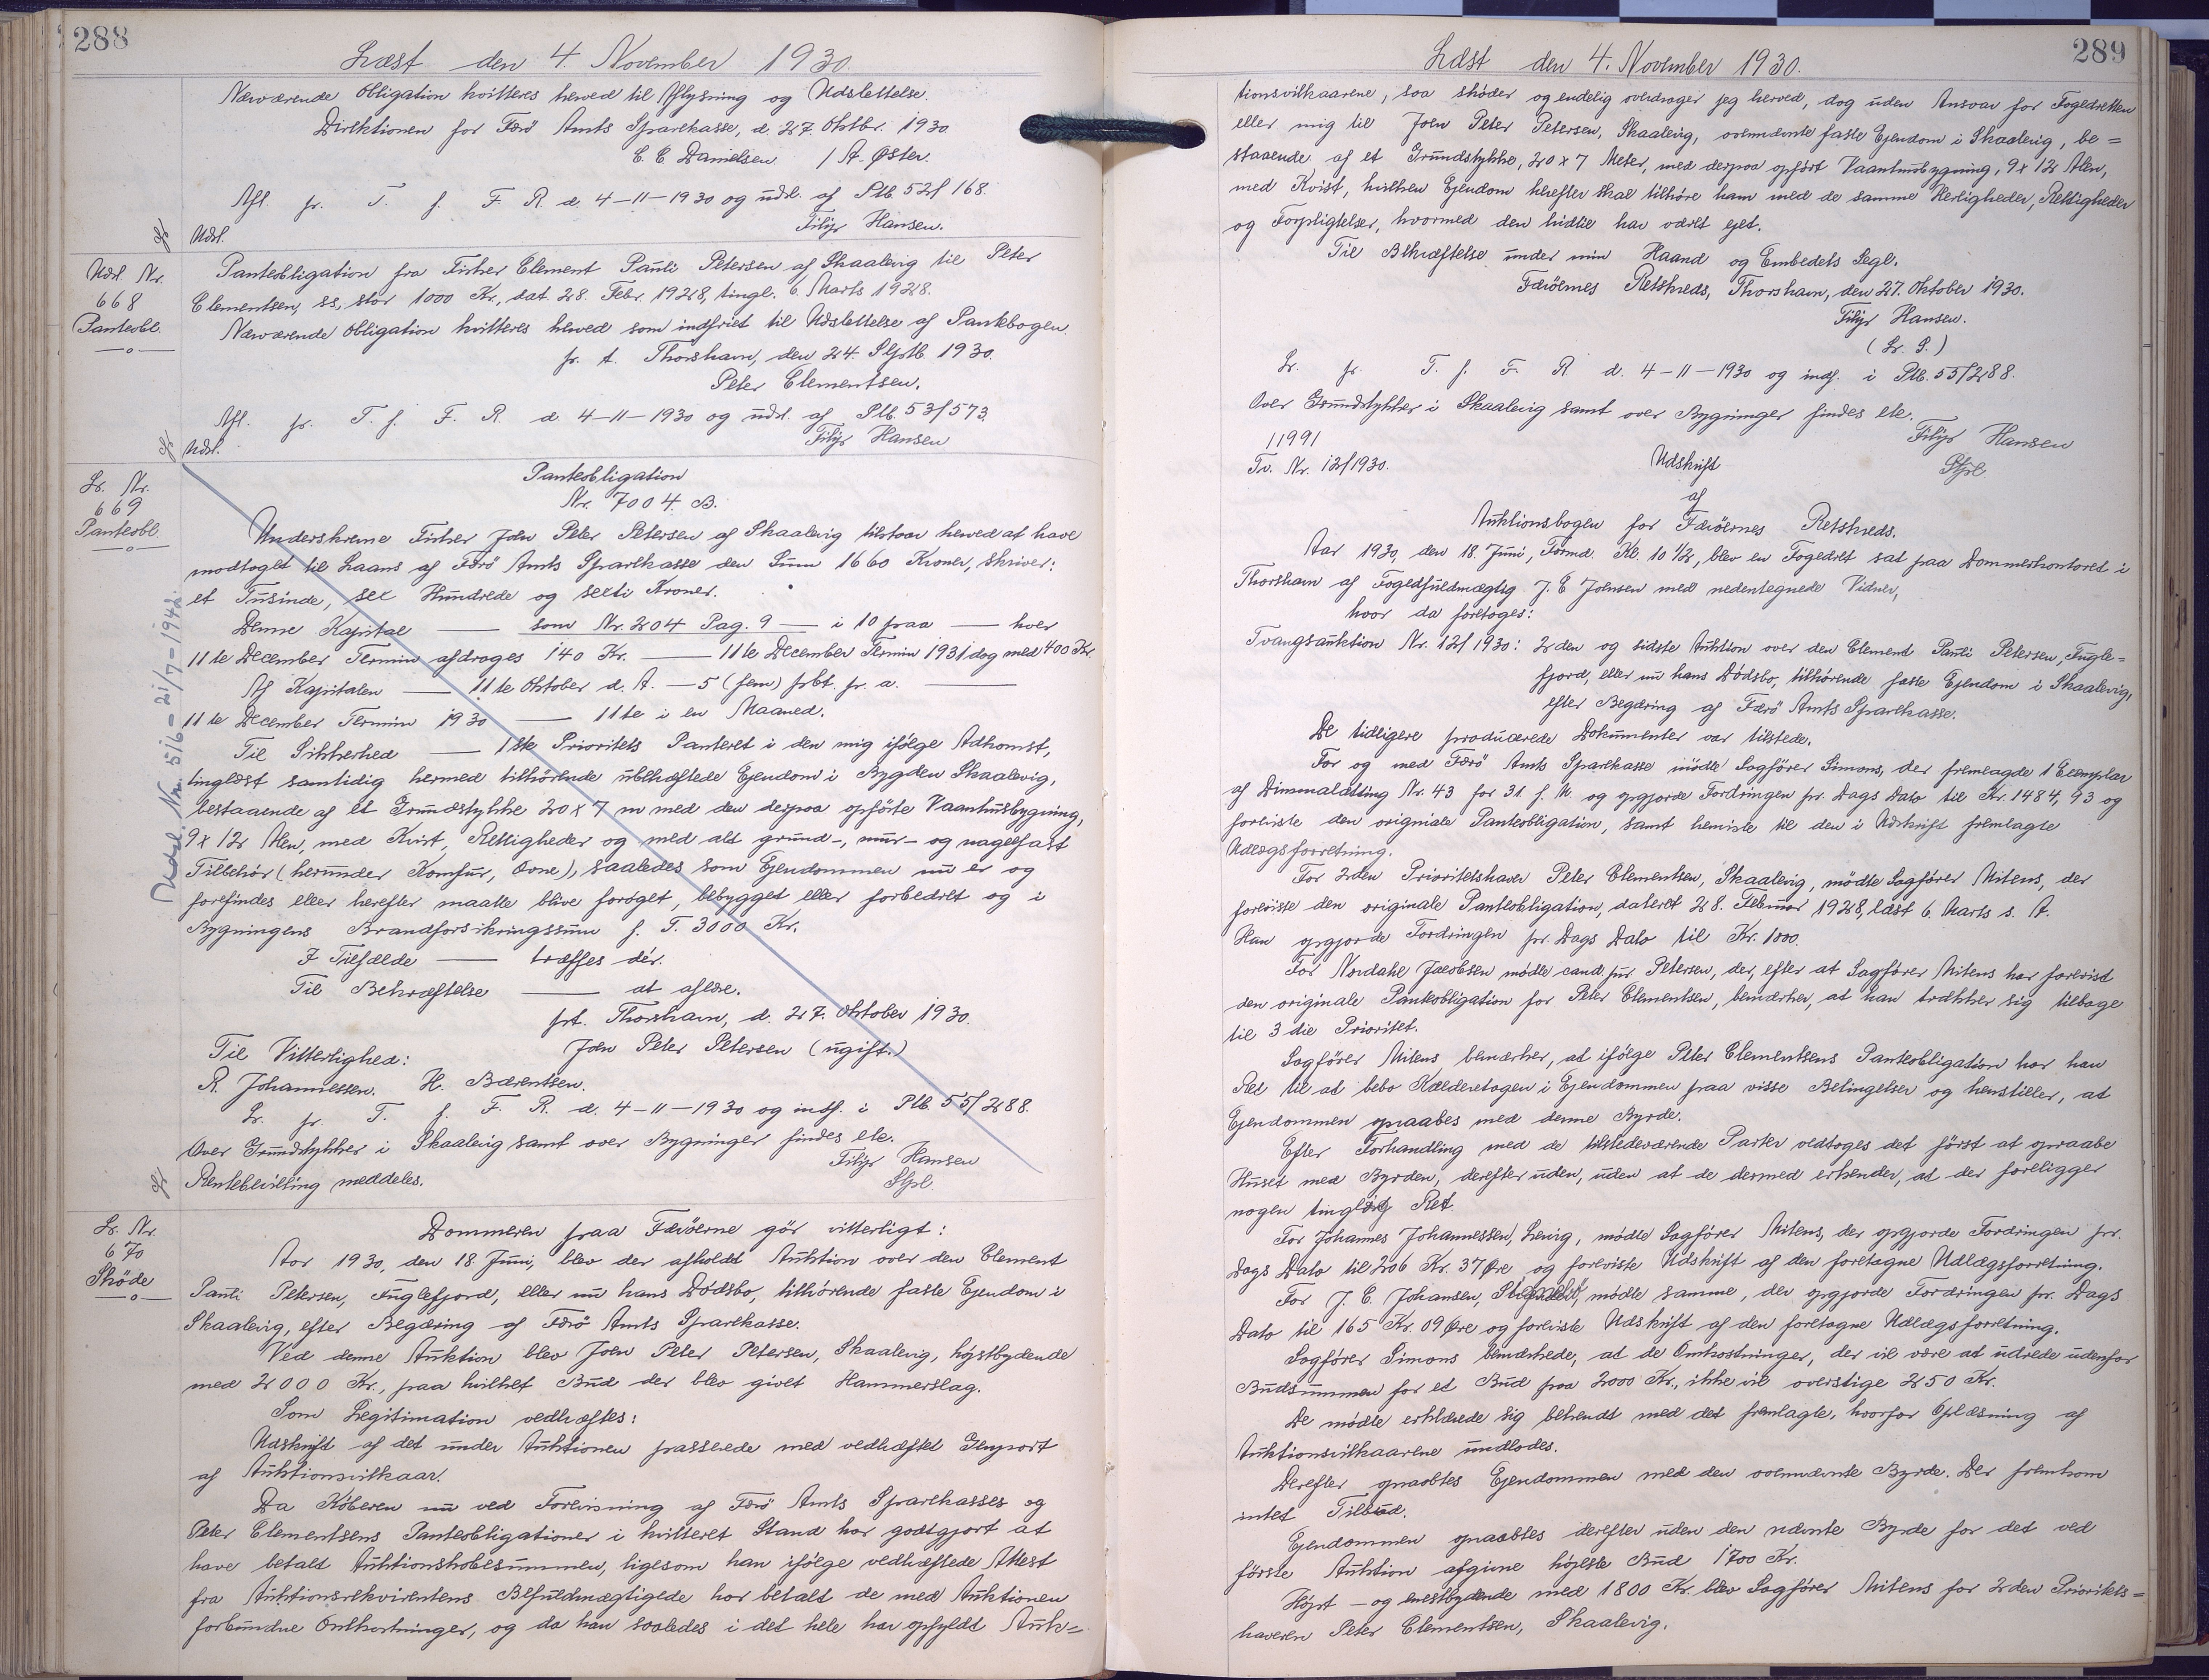 288
Læst den 4. November 1930.
Nærværende Obligation kvitteres herved til Aflysning og Udslettelse.
Direktionen for Færö Amts Sparekasse, d. 27. Oktbr. 1930.
C. C Danielsen / A. Øster.
Afl. pr. T. f. F. R. d. 4-11-1930 og udsl. af Ptb. 52/168.
Filip Hansen.
Udsl.
Udsl. Nr.
668
Panteobl.
Panteobligation fra Fisker Clement Pauli Petersen af Skaalevig til Peter
Clementsen, ss, stor 1000 Kr., dat. 28. Febr. 1928, tingl. 6. Marts 1928.
Nærværende Obligation kvitteres herved som indfriet til Udslettelse af Pantebogen.
p. t. Thorshavn, den 24. Septb. 1930.
Peter Clementsen.
Afl. pr. T. f. F. R. d. 4-11-1930 og udsl. af Ptb. 53/573.
Filip Hansen
Udsl.
Lr. Nr.
669
Panteobl.
Panteobligation
Nr. 7004. B.
Underskrevne Fisker Joen Peter Petersen af Skaalevig tilstaar herved at have
modtaget til Laans af Færö Amts Sparekasse den Sum 1660 Kroner, skriver:
et Tusinde, sex Hundrede og sexti Kroner.
Denne Kapital —— som Nr. 204 Pag. 9 — i 10 paa —— hver
11te December Termin afdrages 140 Kr. —— 11te December Termin 1931 dog med 400 Kr.
Af Kapitalen —— 11te Oktober d. A. — 5 (fem) pCt. p. a. ——
11te December Termin 1930 —— 11te i en Maaned.
Til Sikkerhed —— 1ste Prioritets Panteret i den mig ifölge Adkomst,
tinglæst samtidig hermed tilhörende ubehæftede Ejendom i Bygden Skaalevig,
bestaaende af et Grundstykke 20 x 7 m med den derpaa opförte Vaaningsbygning,
9 x 12 Alen, med Kvist, Rettigheder og med alt grund-, mur- og nagelfast
Tilbehör (herunder Komfur, Ovne), saaledes som Ejendommen nu er og
forefindes eller herefter maatte blive forøget, bebygget eller forbedret og i
Bygningens Brandforsikringssum f. T. 3000 Kr.
I Tilfælde —— træffes dér.
Til Bekræftelse —— at aflæse.
pt. Thorshavn, d. 27. Oktober 1930.
Til Vitterlighed: Joen Peter Petersen (ugift.)
R. Johannessen. H. Bærentsen.
Lr. pr. T. f. F. R. d. 4-11-1930 og indf. i Ptb. 55/288.
Over Grundstykker i Skaalevig samt over Bygninger findes etc.
Filip Hansen
Rentebevilling meddeles.
Udsl. Nr. 516 - 21/7-1942.
Lr. Nr.
670
Skøde
Dommeren paa Færöerne gör vitterligt:
Aar 1930, den 18. Juni, blev der afholdt Auktion over den Clement
Pauli Petersen, Fuglefjord, eller nu hans Dödsbo, tilhörende faste Ejendom i
Skaalevig, efter Begæring af Færö Amts Sparekasse.
Ved denne Auktion blev Joen Peter Petersen, Skaalevig, højstbydende
med 2000 Kr., paa hvilket Bud der blev givet Hammerslag.
Som Legitimation vedhæftes:
Udskrift af det under Auktionen passerede med vedhæftet Genpart
af Auktionsvilkaar.
Da Köberen nu ved Forevisning af Færö Amts Sparekasses og
Peter Clementsens Panteobligationer i kvitteret Stand har godtgjort at
have betalt Auktionskøbesummen, ligesom han ifölge vedhæftede Attest
fra Auktionsrekvirentens Befuldmægtigede har betalt de med Auktionen
forbundne Omkostninger, og da han saaledes i det hele har opfyldt Auk=
289
Læst den 4. November 1930.
tionsvilkaarene, saa skøder og endelig overdrager jeg herved, dog uden Ansvar for Fogedretten
eller mig til Joen Peter Petersen, Skaalevig, ovennævnte faste Ejendom i Skaalevig, be=
staaende af et Grundstykke, 20 x 7 Meter, med derpaa opført Vaaningsbygning, 9 x 12 Alen,
med Kvist, hvilken Ejendom herefter skal tilhöre ham med de samme Herligheder, Rettigheder
og Forpligtelser, hvormed den hidtil har været ejet.
Til Bekræftelse under min Haand og Embedets Segl.
Færöernes Retskreds, Thorshavn, den 27. Oktober 1930.
Filip Hansen.
(L. S.)
Lr. pr. T. f. F. R. d. 4-11-1930 og indf. i Ptb. 55/288.
Over Grundstykker i Skaalevig samt over Bygninger findes etc.
Filip Hansen
11991
Tv. Nr. 12/1930.
Udskrift
af
Auktionsbogen for Færöernes Retskreds.
Aar 1930, den 18. Juni, Formd. Kl. 10 1/2, blev en Fogedret sat paa Dommerkontoret i
Thorshavn af Fogedfuldmægtig J. E Joensen med nedentegnede Vidner,
hvor da foretoges:
Tvangsauktion Nr. 12/1930: 2den og sidste Auktion over den Clement Pauli Petersen, Fugle=
fjord, eller nu hans Dødsbo, tilhørende faste Ejendom i Skaalevig,
efter Begæring af Færö Amts Sparekasse.
De tidligere producerede Dokumenter var tilstede.
For og med Færö Amts Sparekasse mödte Sagförer Simons, der fremlagde 1 Exemplar
af Dimmalætting Nr. 43 for 31. f. M. og opgjorde Fordringen pr. Dags Dato til Kr. 1484,93 og
foreviste den originale Panteobligation, samt henviste til den i Udskrift fremlagte
Udlægsforretning.
For 2den Prioritetshaver Peter Clementsen, Skaalevig, mødte Sagfører Mitens, der
foreviste den originale Panteobligation, dateret 28. Februar 1928, læst 6. Marts s. A.
Han opgjorde Fordringen pr. Dags Dato til Kr. 1000.
For Nordahl Jacobsen mødte cand. jur. Petersen, der, efter at Sagfører Mitens har forevist
den originale Panteobligation for Peter Clementsen, bemærker, at han trækker sig tilbage
til 3die Prioritet.
Sagfører Mitens bemærker, at ifölge Peter Clementsens Panteobligation har han
Ret til at bebo Kælderetagen i Ejendommen paa visse Betingelser og henstiller, at
Ejendommen opraabes med denne Byrde.
Efter Forhandling med de tilstedeværende Parter vedtoges det först at opraabe
Huset med Byrden, derefter uden, uden at de dermed erkender, at der foreligger
nogen tinglig Ret.
For Johannes Johannessen, Lervig, mödte Sagfører Mitens, der opgjorde Fordringen pr.
Dags Dato til 206 Kr. 37 Øre og foreviste Udskrift af den foretagne Udlægsforretning.
For J. C. Johansen, mødte samme, der opgjorde Fordringen pr. Dags
Dato til 165 Kr. 09 Øre og foreviste Udskrift af den foretagne Udlægsforretning.
Sagfører Simons bemærkede, at de Omkostninger, der vil være at udrede udenfor
Budsummen for et Bud paa 2000 Kr., ikke vil overstige 250 Kr.
De mödte erklærede sig bekendt med det fremlagte, hvorfor Oplæsning af
Auktionsvilkaarene undlodes.
Derefter opraabtes Ejendommen med den ovennævnte Byrde. Der fremkom
intet Tilbud.
Ejendommen opraabtes derefter uden den nævnte Byrde for det ved
förste Auktion afgivne højeste Bud 1700 Kr.
Højst- og enestbydende med 1800 Kr. blev Sagfører Mitens for 2den Prioritets=
haveren Peter Clementsen, Skaalevig.